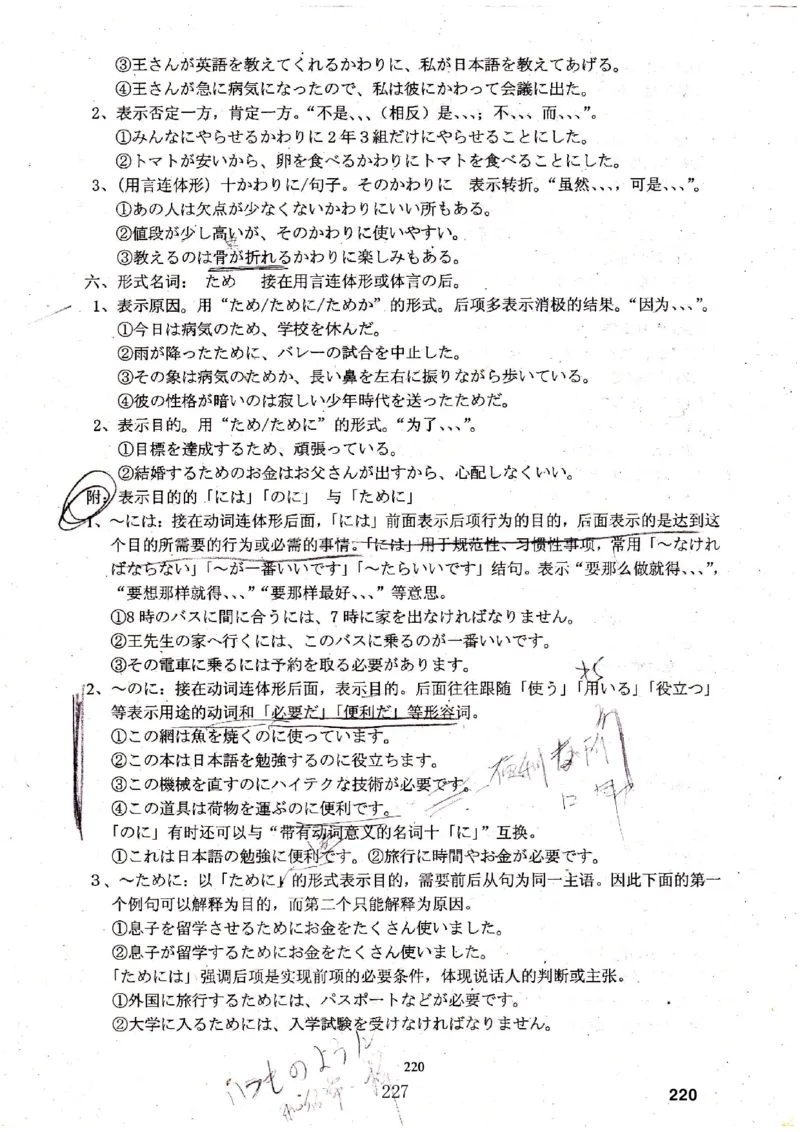 ③王さんが英語を教えてくれるかわりに、私が日本語を教えてあげる。
④王さんが急に病気になったので、私は彼にかわって会議に出た。
2、表示否定一方，肯定一方。“不是、、、（相反）是、、、；不、、、而、、、”。
①みんなにやらせるかわりに２年３組だけにやらせることにした。
②トマトが安いから、卵を食べるかわりにトマトを食べることにした。
3、（用言连体形）十かわりに/句子。そのかわりに　表示转折。“虽然、、、，可是、、、”。
①あの人は欠点が少なくないかわりにいい所もある。
②値段が少し高いが、そのかわりに使いやすい。
③教えるのは骨が折れるかわりに楽しみもある。
六、形式名词：　ため　接在用言连体形或体言の后。
1、表示原因。用“ため/ために/ためか”的形式。后项多表示消极的结果。“因为、、、”。
①今日は病気のため、学校を休んだ。
②雨が降ったために、バレーの試合を中止した。
③その象は病気のためか、長い鼻を左右に振りながら歩いている。
④彼の性格が暗いのは寂しい少年時代を送ったためだ。
2、表示目的。用“ため/ために”的形式。“为了、、、”。
①目標を達成するため、頑張っている。
②結婚するためのお金はお父さんが出すから、心配しなくいい。
附：表示目的的「には」「のに」　与「ために」
1、～には：接在动词连体形后面，「には」前面表示后项行为的目的，后面表示的是达到这
个目的所需要的行为或必需的事情。「には」用于规范性、习惯性事项，常用「～なけれ
ばならない」「～が一番いいです」「～たらいいです」结句。表示“要那么做就得、、、”，
“要想那样就得、、、”“要那样最好、、、”等意思。
①8 時のバスに間に合うには、7 時に家を出なければなりません。
②王先生の家へ行くには、このバスに乗るのが一番いいです。
③その電車に乗るには予約を取る必要があります。
2、～のに：接在动词连体形后面，表示目的。后面往往跟随「使う」「用いる」「役立つ」
等表示用途的动词和「必要だ」「便利だ」等形容词。
①この網は魚を焼くのに使っています。
②この本は日本語を勉強するのに役立ちます。
③この機械を直すのにハイテクな技術が必要です。
④この道具は荷物を運ぶのに便利です。
「のに」有时还可以与“带有动词意义的名词十「に」”互换。
①これは日本語の勉強に便利です。②旅行に時間やお金が必要です。
3、～ために：以「ために」的形式表示目的，需要前后从句为同一主语。因此下面的第一
个例句可以解释为目的，而第二个只能解释为原因。
①息子を留学させるためにお金をたくさん使いました。
②息子が留学するためにお金をたくさん使いました。
「ためには」强调后项是实现前项的必要条件，体现说话人的判断或主张。
①外国に旅行するためには、パスポートなどが必要です。
②大学に入るためには、入学試験を受けなければなりません。
のように
220
227
220